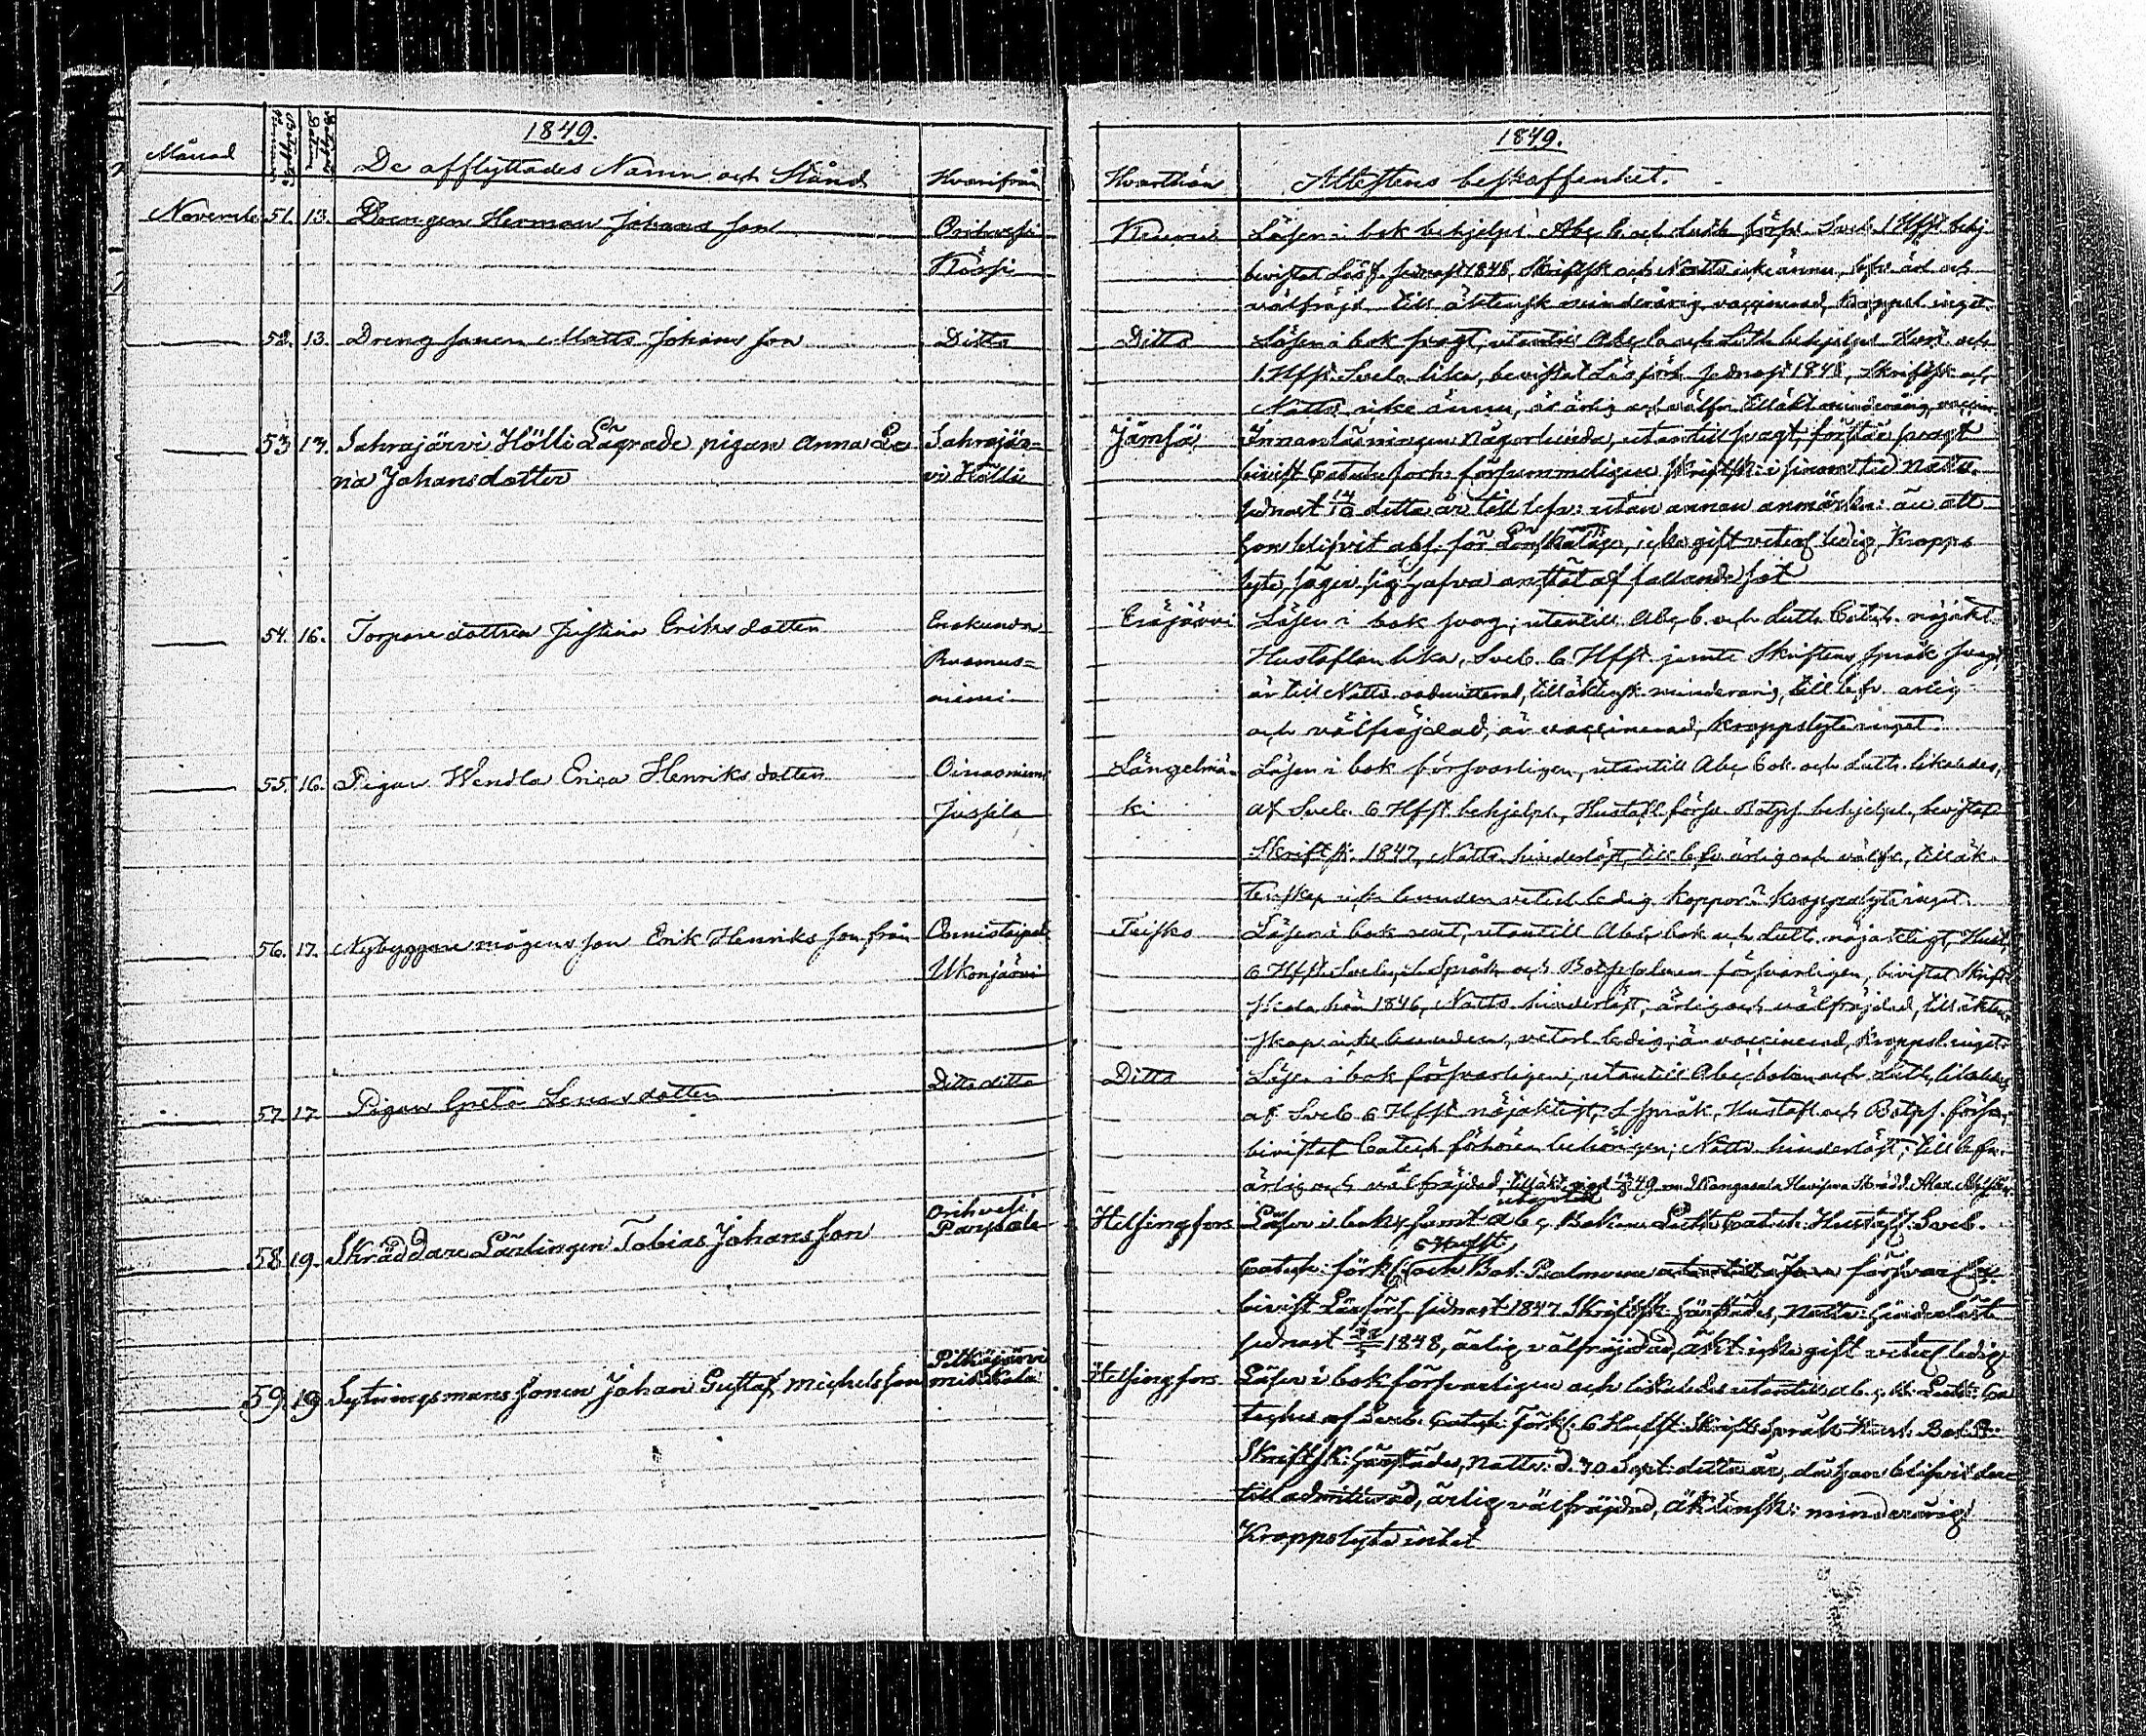 1849.
Månad
De afflyttades Namn och Stånd
Hvarifrån
November 51. 13. Drengen Herman Johans son
Orihvesi
52. 13. Dreng sonen Matts Johans son Ditto
53 13. Sahrajärvi Hölli Lägrade pigan Anna Le
na Johansdotter
Sahrajär=
vi Hölli
54. 16. Torpare dottren Justina Eriks dotter
Erakunda
Rasmus=
niemi
55. 16. Pigan Wendla Erica Henriks dotter
Oinasniemi
Jussila
56. 17. Nybyggare mågens son Erik Henriks son från
Ukonjärvi
57. 17. Pigan Greta Lenas dotter
Ditto ditto
58 19. Skräddare Lärlingen Tobias Johansson
Orihvesi
Parpala
59. 19 Sytningsmans sonen Johan Gustaf Michelsson
Pitkäjärvi
Mikkela
1849.
Hvarthän
Attestens beskaffenhet.
Läser i bok behjelpl. Abc b. och Luth. försv. Sveb. 1 Hfst behj.
bevistat Läsf. sednast 1848, Skriftsk och Nattv. icke ännu, är och
välfräjd. till äktensk minderårig, vaccinerad, Kroppsl. inget.
Ditto
Läser i bok svagt, utantill Abc bo och Luth behjelpl. Hust. och
1. Hfst. Sveb. lika, bevistat Läsförh sednast 1848, Skriftsk. och
Nattv. icke ännu, är ärlig och välfr. till äkt. minderårig, vaccin.
Jämsä
Innanläsningen någorlunda, utantill svagt, förstår svagt
bevist Catech förh: försummeligen, Skriftsk: i sinom tid Nattv.
sednast 14/10 detta år till lefv: utan annan anmärkn: än att
hon blifvit abs. för Lönskaläge, icke gift veterl ledig, Kropps
lyte, säger sig hafva anstöt af fallande sot
Eräjärvi
Läser i bok svag, utantill Abc b. och Luth. Catech. nöjakt.
Hustaflan lika, Sveb. 6 Hfst. jemte Skriftens språk svagt,
är till Nattv. admitterad, till äktensk minderårig, till lefv. ärlig
och välfräjdad, är vaccinerad, kroppslyte inget.
Längelmä=
ki
Läser i bok försvarligen, utantill Abc bok och Luth. likaledes,
af Sveb. 6 Hfst. behjelpl., Hustafl. försv. Botps. behjelpl., bevistat
Skriftsk. 1847, Nattv. hinderlöst, till lefv ärlig och välfr., till äk=
tenskap icke bunden veterl. ledig koppor? kroppslyte inget.
Teisko
Läser i bok rent, utantill Abc, bok och Luth. nöjaktligt, Hust,
6 Hfst. Sveb., S. språk och Botpsalmen försvarligen, bevistat Skrift
1846, Nattv. hinderlöst, ärlig och välfräjdad, till äkten
skap icke bunden, veterl. ledig, är vaccinerad, Kroppsl. inget.
Ditto
Läser i bok försvarligen, utantill Abc, boken och Luth, likaledes,
af Sveb 6 Hfst nöjaktligt, S. språk, Hustafl. och Botps. försv.,
bevistat Catech förhören behörigen, Nattv. hinderlöst, till lefv.
ärlig och välfräjdad, till äkt.
Helsingfors
utantill
Läser i bok, samt abc, Boken Luth: Catech: Hustafl. Sveb.
6 Hufst.
Catech: förkl: och Bot. Psalmerna försvarl.
bevist Läsförh sednast 1847. Skriftsk: härstädes, Nattv: hinderlöst
sednast 1848, ärlig, välfräjdad, äkt: icke gift veterl ledig
Helsingfors
Läser i bok försvarligen och likaledes utantill abc, b. Luth: Ca
teches af Sveb. Catech: förkl: 6 Hufst. Skrift. Språk Hust. Bot. P.
Skriftsk: härstädes, Nattv: d. 30 Sept: detta år, då han blifvit der
till admitterad, ärlig välfräjdad, äktensk: minderårig
Kroppslyte intet